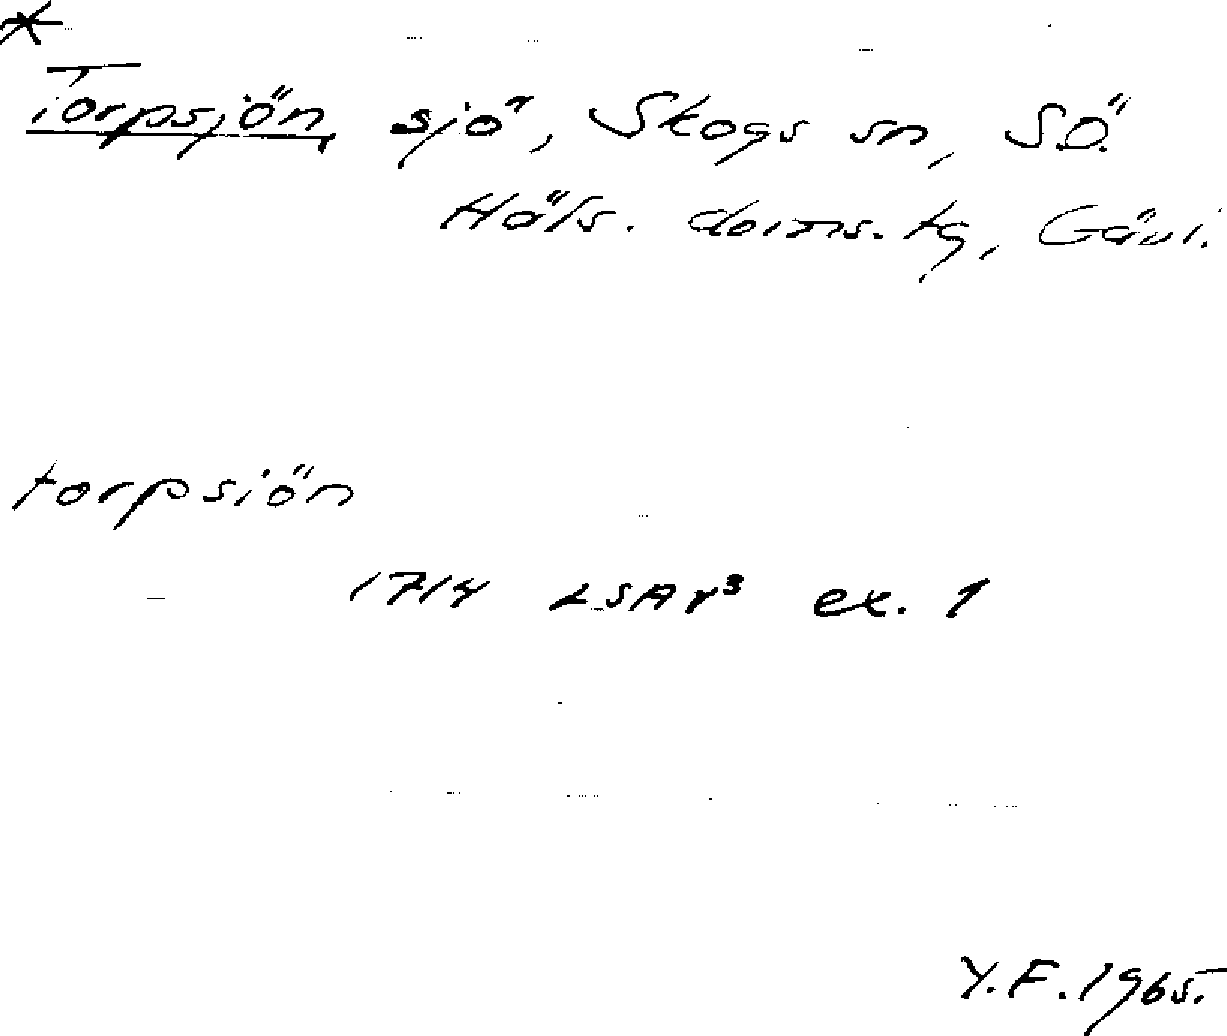 *
Torpsjön sjö, Skogs sn, S.Ö.
Häls. doms.tg, Gävl.
torpsiön
1714 LSA γ³ ex. 1
Y.F. 1965.